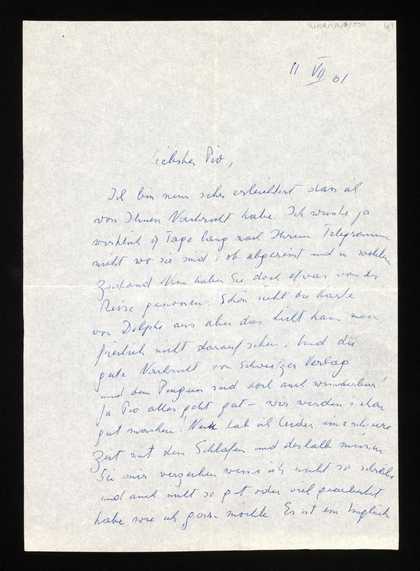 11 VII 61
Liebster Pio,
Ich bin nun sehr erleichtert dass ich
von Ihnen Nachricht habe. Ich wusste ja
wirklich 8 Tage lang nach Ihrem Telegramm
nicht wo sie sind, ob abgereist und in welchem
Zustand. Nun haben Sie doch etwas von der
Reise gewonnen. Schön sieht die Karte
von Delphi aus aber das Licht kann man
freilich nicht darauf sehen. Und die
gute Nachricht von Schweitzer Verlag
und dem Pinguin sind doch auch wunderbar!
Ja Pio alles geht gut – wir werden schon
gut machen. Nur hab ich leider eine schwere
Zeit mit dem Schlafen und deshalb müssen
Sie mir verzeihen wenn ich nicht so schreibe
und auch nicht so gut oder viel gearbeitet
habe wie ich gern möchte. Es ist ein Unglück